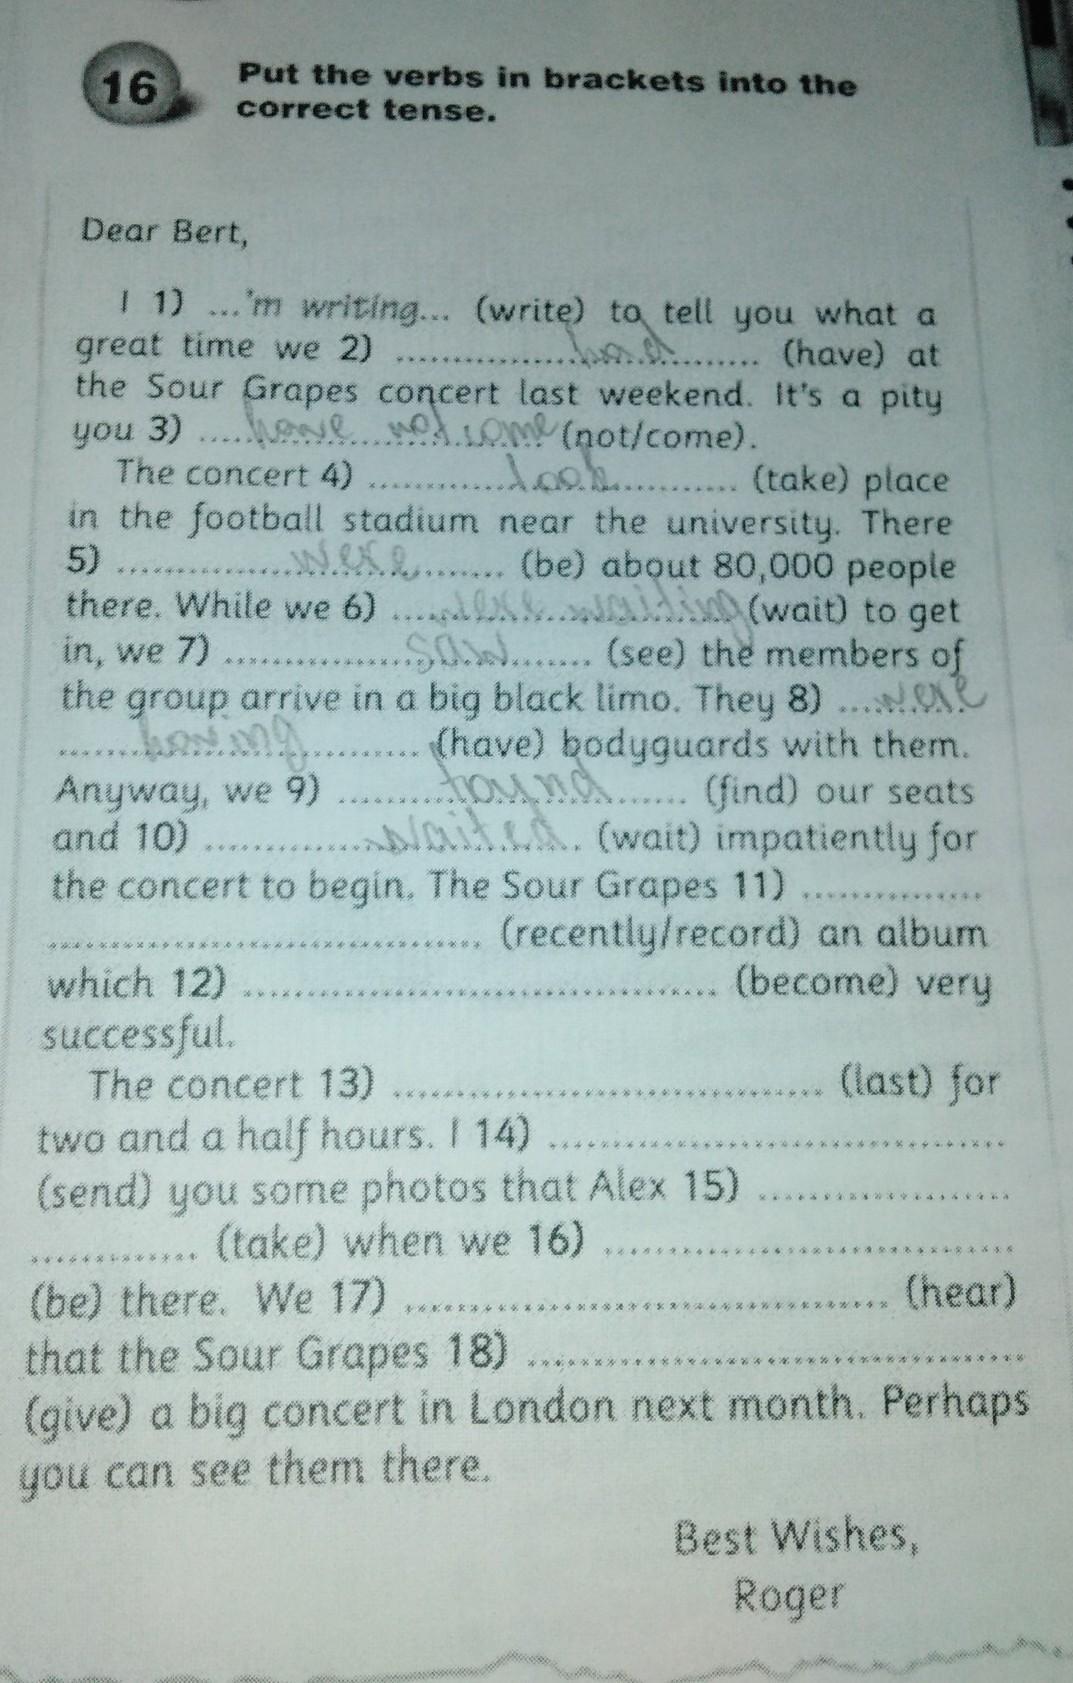 16
Put the verbs in brackets into the
correct tense.
Dear Bert,
I 1) ...'m writing... (write) to tell you what a
great time we 2) ..................had......... (have) at
the Sour Grapes concert last weekend. It's a pity
you 3) .....have not come (not/come).
The concert 4) .............took............ (take) place
in the football stadium near the university. There
5) ...................were......... (be) about 80,000 people
there. While we 6) ....were waiting (wait) to get
in, we 7) .................saw........ (see) the members of
the group arrive in a big black limo. They 8) ...were
........having.......... (have) bodyguards with them.
Anyway, we 9) ..........found....... (find) our seats
and 10) ................waited. (wait) impatiently for
the concert to begin. The Sour Grapes 11) ...............
..................................... (recently/record) an album
which 12) ........................................ (become) very
successful.
The concert 13) .................................... (last) for
two and a half hours. I 14) ......................................
(send) you some photos that Alex 15) .....................
.............. (take) when we 16) ..................................
(be) there. We 17) ........................................ (hear)
that the Sour Grapes 18) .........................................
(give) a big concert in London next month. Perhaps
you can see them there.
Best Wishes,
Roger